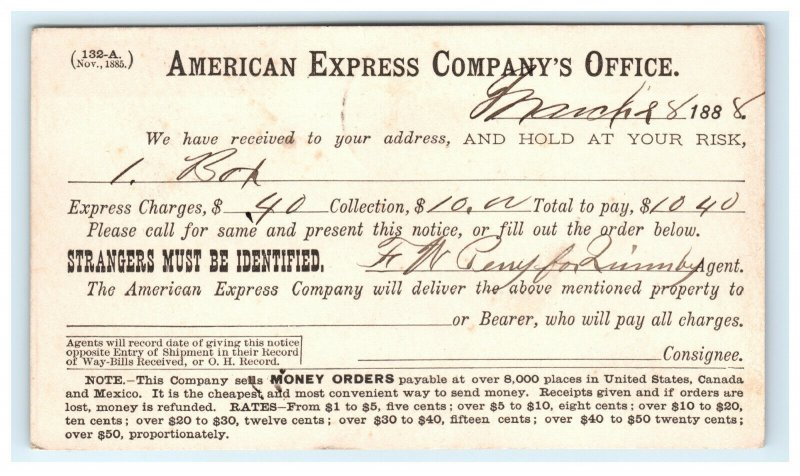 132-A.
(Nov., 1885.)
AMERICAN EXPRESS COMPANY'S OFFICE.
March 28 1888.
We have received to your address, AND HOLD AT YOUR RISK,
1. Box
Express Charges, $ .40 Collection, $10.00 Total to pay, $10 40
Please call for same and present this notice, or fill out the order below.
STRANGERS MUST BE IDENTIFIED. F W Perry for Quimby Agent.
The American Express Company will deliver the above mentioned property to
or Bearer, who will pay all charges.
Agents will record date of giving this notice
opposite Entry of Shipment in their Record
of Way-Bills Received, or O. H. Record.
Consignee.
NOTE.—This Company sells MONEY ORDERS payable at over 8,000 places in United States, Canada
and Mexico. It is the cheapest and most convenient way to send money. Receipts given and if orders are
lost, money is refunded. RATES—From $1 to $5, five cents; over $5 to $10, eight cents; over $10 to $20,
ten cents; over $20 to $30, twelve cents; over $30 to $40, fifteen cents; over $40 to $50 twenty cents;
over $50, proportionately.